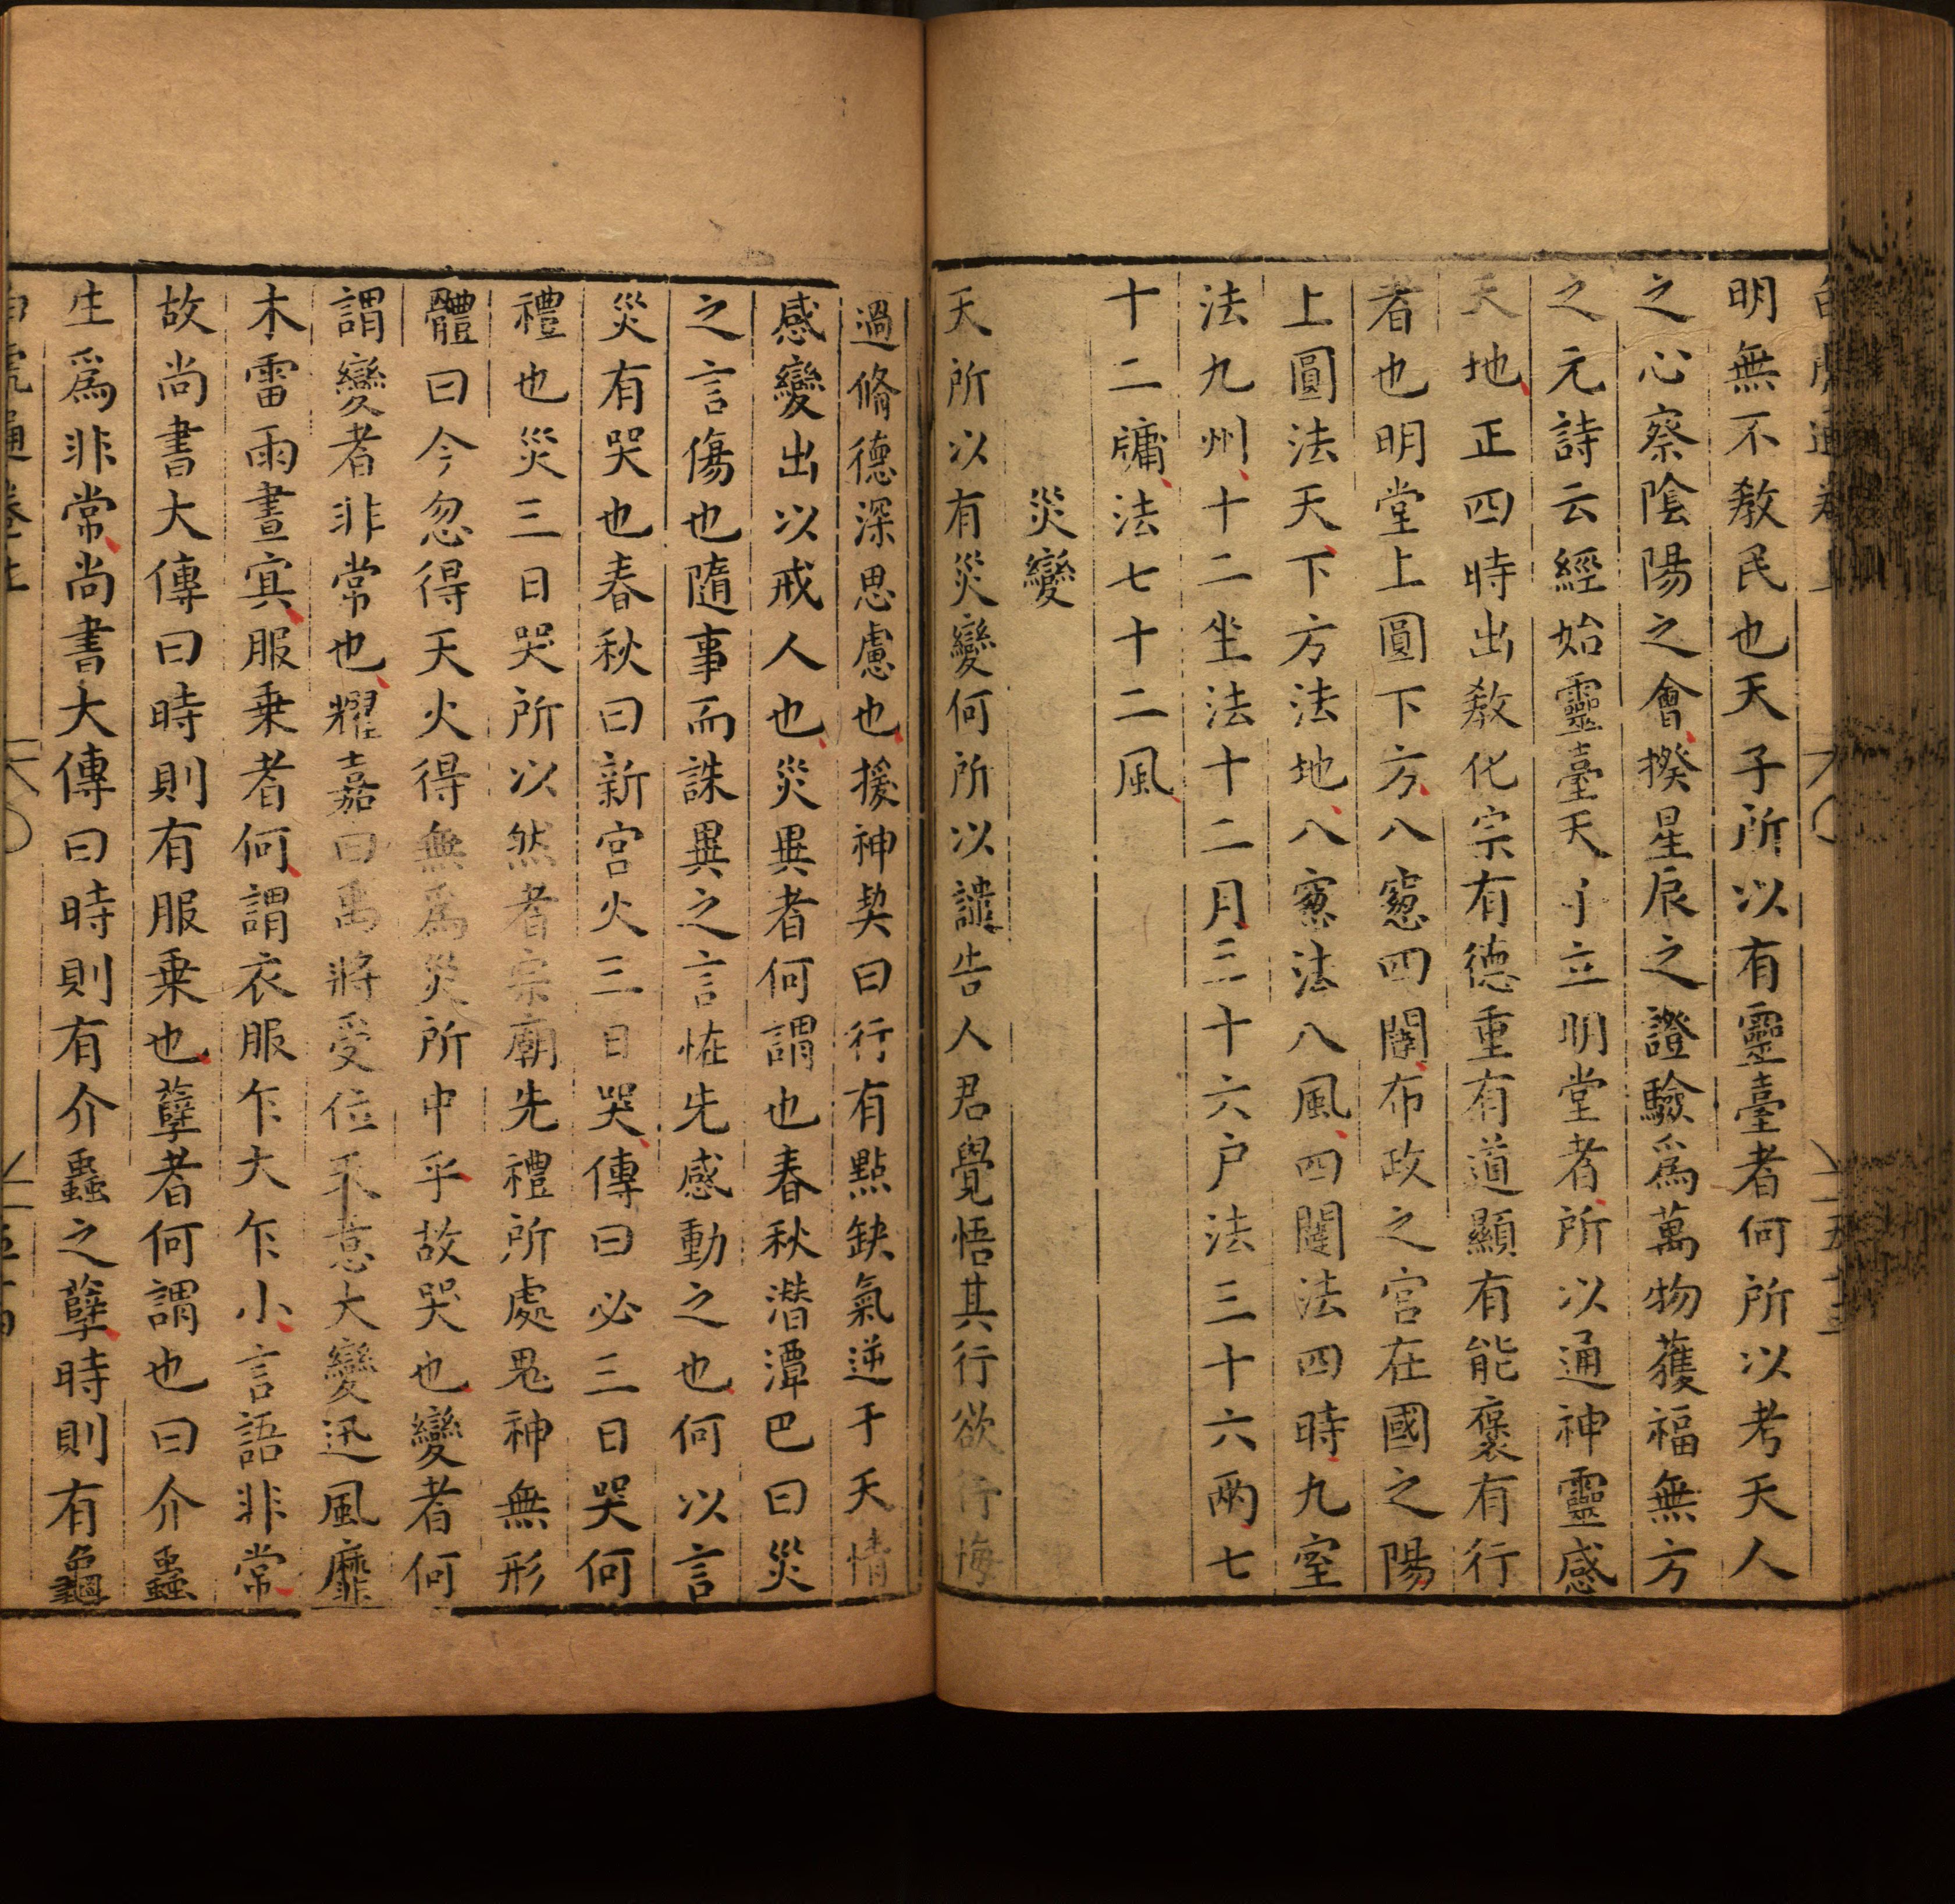 明無不教民也天子所以有靈臺者何所以考天人
之心察陰陽之會揆星辰之證驗爲萬物獲福無方
之元詩云經始靈臺天子立明堂者所以通神靈感
天地正四時出教化宗有德重有道顯有能褒有行
者也明堂上圓下方八窻四闥布政之宮在國之陽
上圓法天下方法地八窻法八風四闥法四時九室
法九州十二坐法十二月三十六户法三十六兩七
十二牖法七十二風
災變
天所以有災變何所以譴告人君覺悟其行欲行悔
過脩德深思慮也援神契曰行有點缺氣逆于天情
感變出以戒人也災異者何謂也春秋潛潭巴曰災
之言傷也隨事而誅異之言恠先感動之也何以言
災有哭也春秋曰新宮火三日哭傳曰必三日哭何
禮也災三日哭所以然者宗廟先禮所處鬼神無形
體曰今忽得天火得無爲災所中乎故哭也變者何
謂變者非常也耀嘉曰禹將受位天意大變迅風靡
木雷雨晝冥服乗者何謂衣服乍大乍小言語非常
故尚書大傳曰時則有服乗也孽者何謂也曰介蟲
生爲非常尚書大傳曰時則有介蟲之孽時則有龜
白虎通卷上